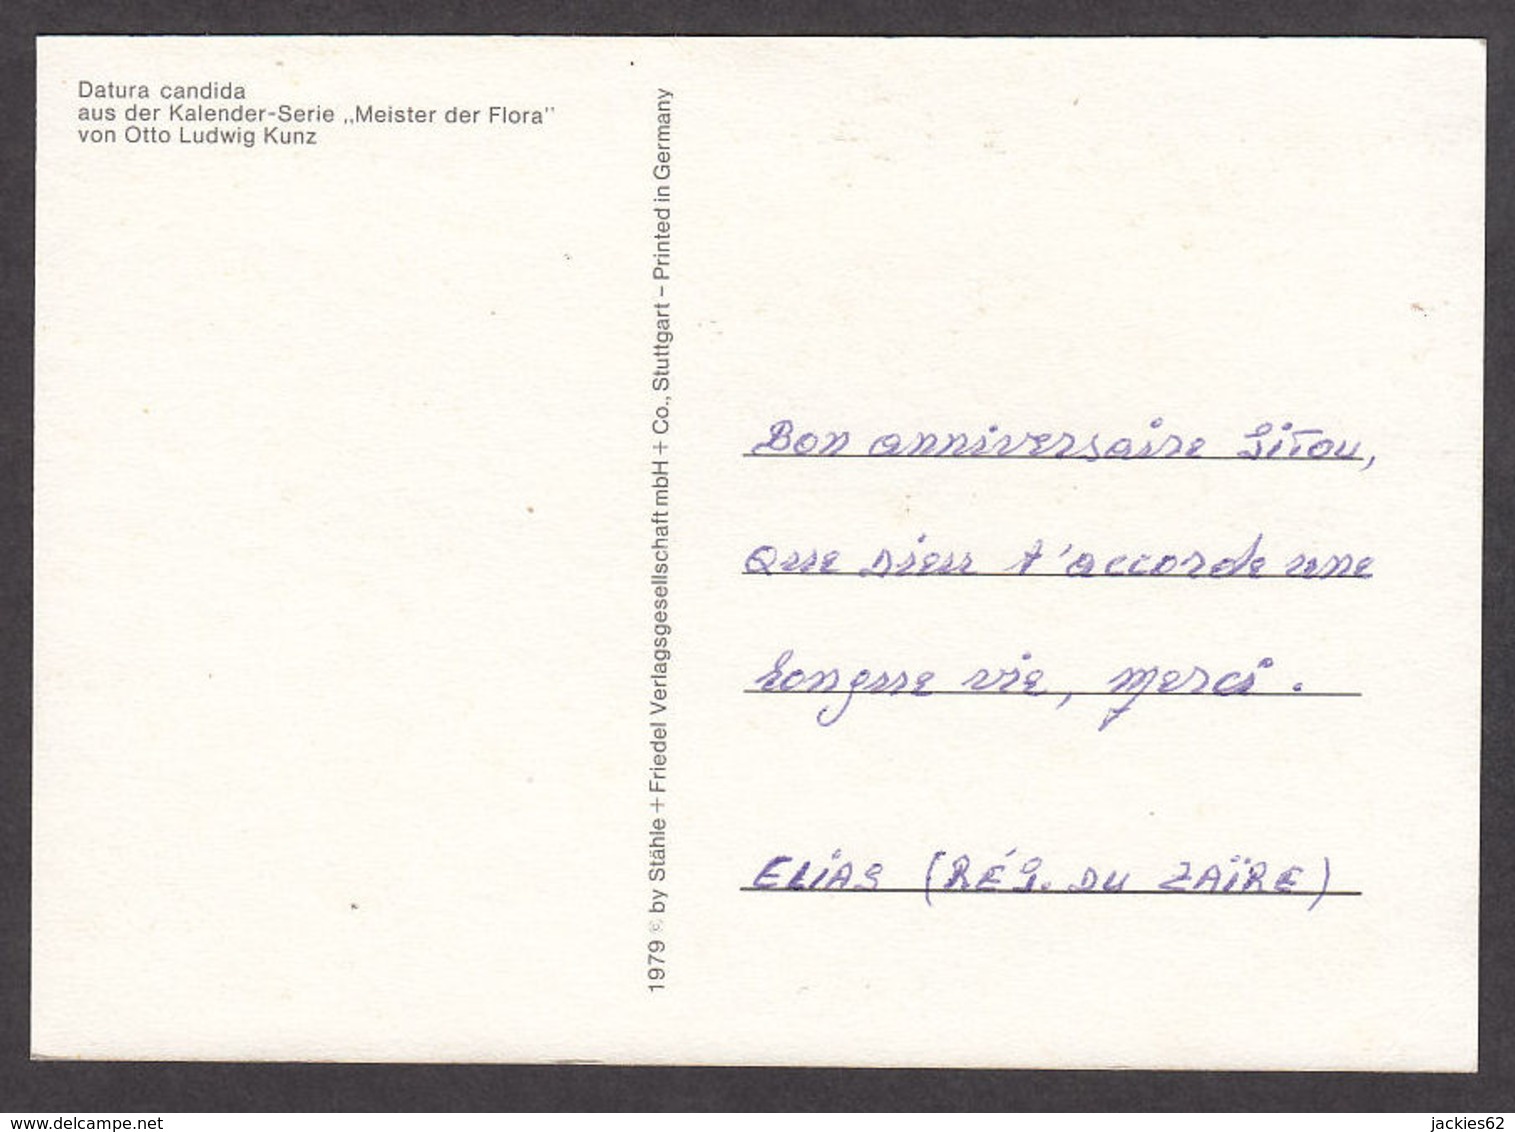 Datura candida
aus der Kalender-Serie „Meister der Flora"
von Otto Ludwig Kunz
1979 © by Stähle + Friedel Verlagsgesellschaft mbH + Co., Stuttgart – Printed in Germany
Bon anniversaire Sitou,
Que Dieu t'accorde une
longue vie, merci.
ELIAS (RÉG. DU ZAÏRE)
delcampe.net
jackies62